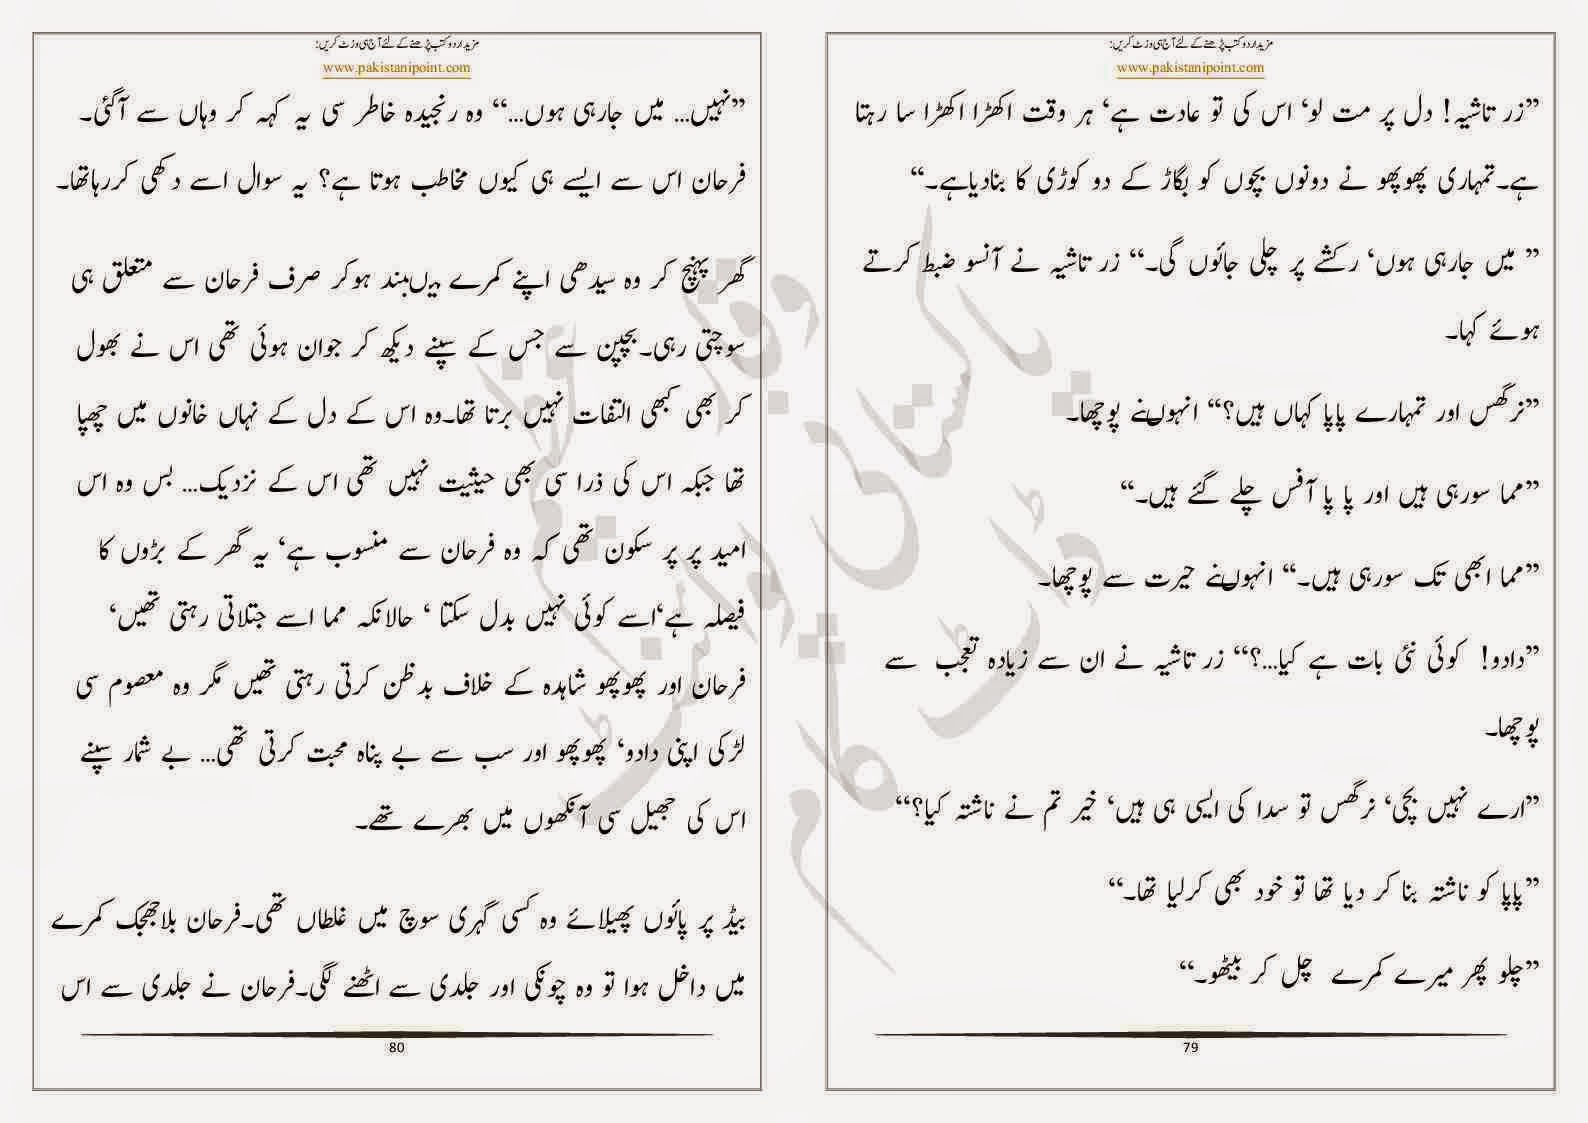 مزید اردو کتب پڑھنے کے لئے آج ہی وزٹ کریں:
www.pakistanipoint.com
”زر تاشیہ! دل پر مت لو‘ اس کی تو عادت ہے‘ ہر وقت اکھڑا اکھڑا سا رہتا
ہے۔تمہاری پھوپھو نے دونوں بچوں کو بگاڑ کے دو کوڑی کا بنادیاہے۔“
” میں جارہی ہوں‘ رکشے پر چلی جائوں گی۔“ زر تاشیہ نے آنسو ضبط کرتے
ہوئے کہا۔
”نرگھس اور تمہارے پاپا کہاں ہیں؟“ انہوںنے پوچھا۔
”مما سورہی ہیں اور پا پا آفس چلے گئے ہیں۔“
”مما ابھی تک سورہی ہیں۔“ انہوںنے حیرت سے پوچھا۔
”دادو! کوئی نئی بات ہے کیا...؟“ زر تاشیہ نے ان سے زیادہ تعجب سے
پوچھا۔
”ارے نہیں بچی‘ نرگھس تو سدا کی ایسی ہی ہیں‘ خیر تم نے ناشتہ کیا؟“
”پاپا کو ناشتہ بنا کر دیا تھا تو خود بھی کرلیا تھا۔“
”چلو پھر میرے کمرے چل کر بیٹھو۔“
79
مزید اردو کتب پڑھنے کے لئے آج ہی وزٹ کریں:
www.pakistanipoint.com
”نہیں... میں جارہی ہوں...“ وہ رنجیدہ خاطر سی یہ کہہ کر وہاں سے آگئی۔
فرحان اس سے ایسے ہی کیوں مخاطب ہوتا ہے؟ یہ سوال اسے دکھی کررہاتھا۔
گھر پہنچ کر وہ سیدھی اپنے کمرے میںبند ہوکر صرف فرحان سے متعلق ہی
سوچتی رہی۔بچپن سے جس کے سپنے دیکھ کر جوان ہوئی تھی اس نے بھول
کر بھی کبھی التفات نہیں برتا تھا۔وہ اس کے دل کے نہاں خانوں میں چھپا
تھا جبکہ اس کی ذرا سی بھی حیثیت نہیں تھی اس کے نزدیک... بس وہ اس
امید پر پر سکون تھی کہ وہ فرحان سے منسوب ہے‘ یہ گھر کے بڑوں کا
فیصلہ ہے‘اسے کوئی نہیں بدل سکتا ‘ حالانکہ مما اسے جتلاتی رہتی تھیں‘
فرحان اور پھوپھو شاہدہ کے خلاف بدظن کرتی رہتی تھیں مگر وہ معصوم سی
لڑکی اپنی دادو‘ پھوپھو اور سب سے بے پناہ محبت کرتی تھی... بے شمار سپنے
اس کی جھیل سی آنکھوں میں بھرے تھے۔
بیڈ پر پائوں پھیلائے وہ کسی گہری سوچ میں غلطاں تھی۔فرحان بلاجھجک کمرے
میں داخل ہوا تو وہ چونکی اور جلدی سے اٹھنے لگی۔فرحان نے جلدی سے اس
80
پاکستانی پوائنٹ ڈاٹ کام